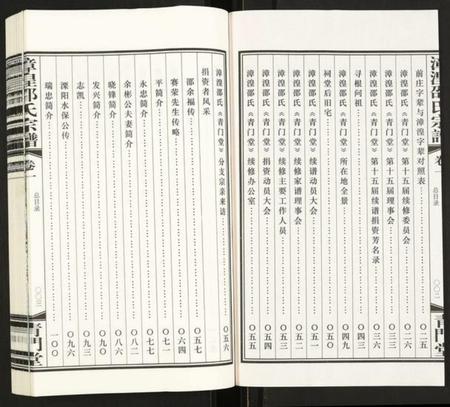 漳湟邵氏宗譜 卷一 总目录 青門堂
前庄字辈与漳湟字辈对照表……〇二五
漳湟邵氏《青门堂》第十五届续修委员会……
漳湟邵氏《青门堂》第十五届理事会……
漳湟邵氏《青门堂》第十五届续谱捐资芳名录……
寻根问祖……〇四九
漳湟邵氏《青门堂》所在地全景……
祠堂后旧宅……
漳湟邵氏《青门堂》续谱动员大会……
漳湟邵氏《青门堂》续修家谱理事会……
漳湟邵氏《青门堂》续修主要工作人员……
漳湟邵氏《青门堂》捐资动员大会……
漳湟邵氏《青门堂》续修办公室……〇五五
漳湟邵氏《青门堂》分支宗亲来访……〇五六
捐资者风采
邵余福传……〇五七
赛荣先生传略……〇六四
平简介……〇七一
永忠简介……〇七七
余彬公夫妻简介……〇八二
晓锋简介……〇八六
发兴简介……〇九〇
志凯……〇九三
溧阳水保公传……〇九六
瑞忠简介……一〇〇
漳湟邵氏宗譜 卷一 总目录 青門堂